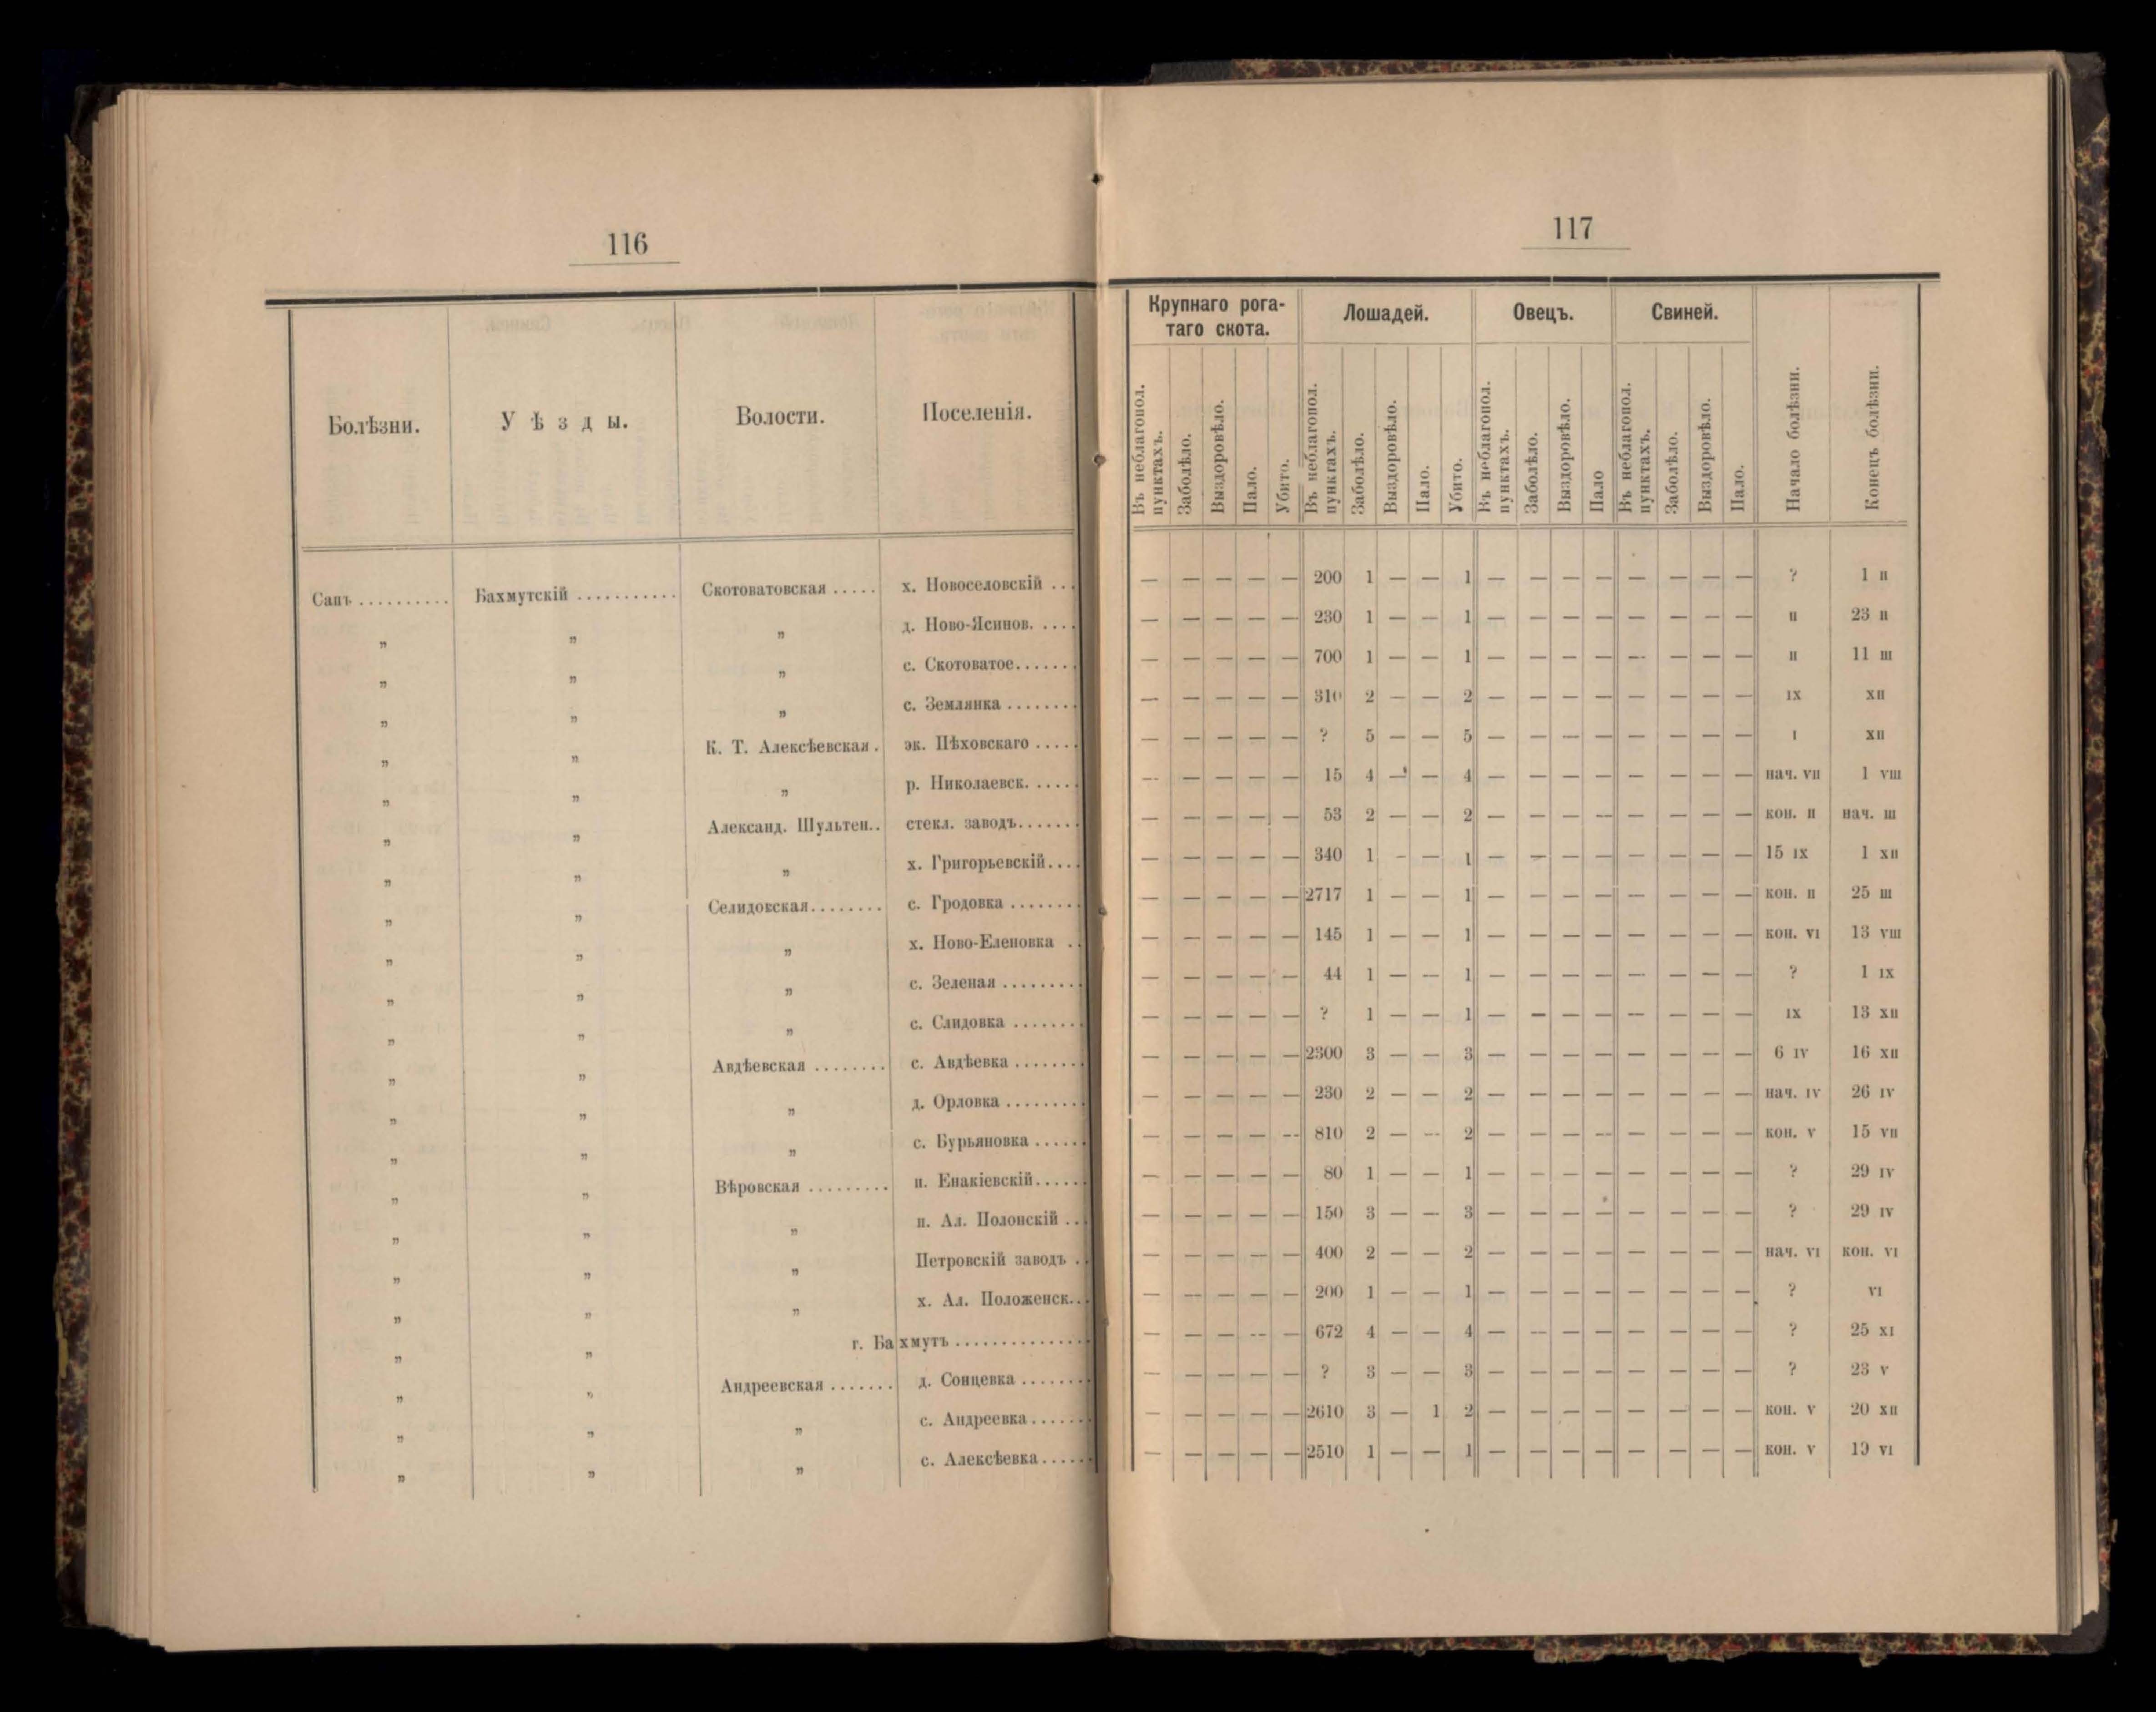 116
Болѣзни. Уѣзды. Волости. Поселенія.
Сапъ .......... Бахмутскій ........... Скотоватовская ..... х. Новоселовскій ...
„ „ „ д. Ново-Ясинов. ....
„ „ „ с. Скотоватое.......
„ „ „ с. Землянка ........
„ „ К. Т. Алексѣевская . эк. Пѣховскаго .....
„ „ „ р. Николаевск. .....
„ „ Александ. Шультен.. стекл. заводъ.......
„ „ „ х. Григорьевскій....
„ „ Селидовская........ с. Гродовка ........
„ „ „ х. Ново-Еленовка ..
„ „ „ с. Зеленая .........
„ „ „ с. Слидовка ........
„ „ Авдѣевская ........ с. Авдѣевка ........
„ „ „ д. Орловка .........
„ „ „ с. Бурьяновка ......
„ „ Вѣровская ......... п. Енакіевскій......
„ „ „ п. Ал. Полонскій ...
„ „ „ Петровскій заводъ ..
„ „ „ х. Ал. Положенск...
„ „ г. Бахмутъ ...............
„ „ Андреевская ....... д. Сонцевка ........
„ „ „ с. Андреевка.......
„ „ „ с. Алексѣевка......
117
Крупнаго рога-
таго скота. Лошадей. Овецъ. Свиней.
Въ неблагопол. пунктахъ. Заболѣло. Выздоровѣло. Пало. Убито. Въ неблагопол. пунктахъ. Заболѣло. Выздоровѣло. Пало. Убито. Въ неблагопол. пунктахъ. Заболѣло. Выздоровѣло. Пало Въ неблагопол. пунктахъ. Заболѣло. Выздоровѣло. Пало. Начало болѣзни. Конецъ болѣзни.
— — — — — 200 1 — — 1 — — — — — — — — ? 1 II
— — — — — 230 1 — — 1 — — — — — — — — II 23 II
— — — — — 700 1 — — 1 — — — — — — — — II 11 III
— — — — — 310 2 — — 2 — — — — — — — — IX XII
— — — — — ? 5 — — 5 — — — — — — — — I XII
— — — — — 15 4 — — 4 — — — — — — — — нач. VII 1 VIII
— — — — — 53 2 — — 2 — — — — — — — — кон. II нач. III
— — — — — 340 1 — — 1 — — — — — — — — 15 IX 1 XII
— — — — — 2717 1 — — 1 — — — — — — — — кон. II 25 III
— — — — — 145 1 — — 1 — — — — — — — — кон. VI 13 VIII
— — — — — 44 1 — — 1 — — — — — — — — ? 1 IX
— — — — — ? 1 — — 1 — — — — — — — — IX 13 XII
— — — — — 2300 3 — — 3 — — — — — — — — 6 IV 16 XII
— — — — — 230 2 — — 2 — — — — — — — — нач. IV 26 IV
— — — — — 810 2 — — 2 — — — — — — — — кон. V 15 VII
— — — — — 80 1 — — 1 — — — — — — — — ? 29 IV
— — — — — 150 3 — — 3 — — — — — — — — ? 29 IV
— — — — — 400 2 — — 2 — — — — — — — — нач. VI кон. VI
— — — — — 200 1 — — 1 — — — — — — — — ? VI
— — — — — 672 4 — — 4 — — — — — — — — ? 25 XI
— — — — — ? 3 — — 3 — — — — — — — — ? 23 V
— — — — — 2610 3 — 1 2 — — — — — — — — кон. V 20 XII
— — — — — 2510 1 — — 1 — — — — — — — — кон. V 19 VI